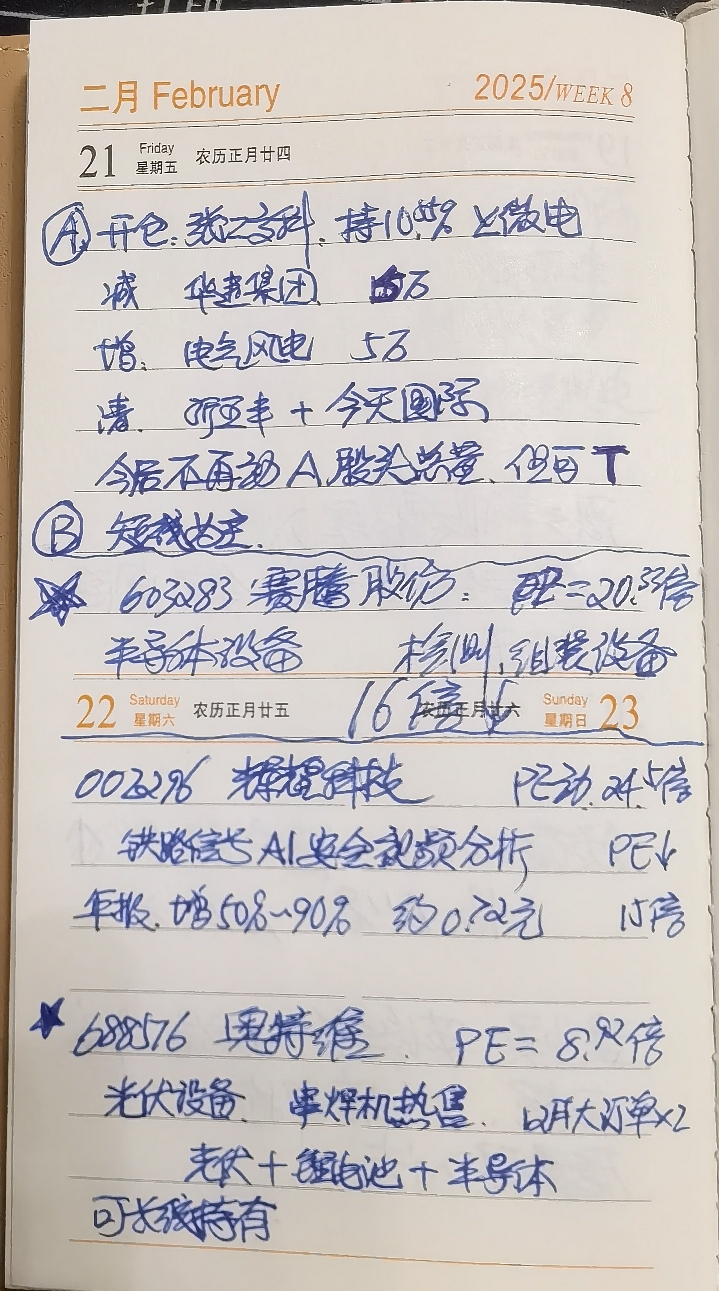 二月 February 2025/WEEK 8
21 Friday 星期五 农历正月廿四
Ⓐ 开仓:张江高科,持10.5% 上微电
减 华建集团 5万
增: 电气风电 5万
清. + 今天国际
今后不再动A股总量,但可T
Ⓑ 短线为主.
603283 赛腾股份: PE=20.33倍
半导体设备 检测,组装设备
16倍↓
22 Saturday 星期六 农历正月廿五 农历正月廿六 Sunday 星期日 23
002296 辉煌科技 PE动.24.5倍
铁路信号 AI安全视频分析 PE↓
年报.增50%~90% 约0.72元 15倍
688516 奥特维. PE=8.92倍
光伏设备. 串焊机热售. 12月大订单×2
光伏+锂电池+半导体
可长线持有